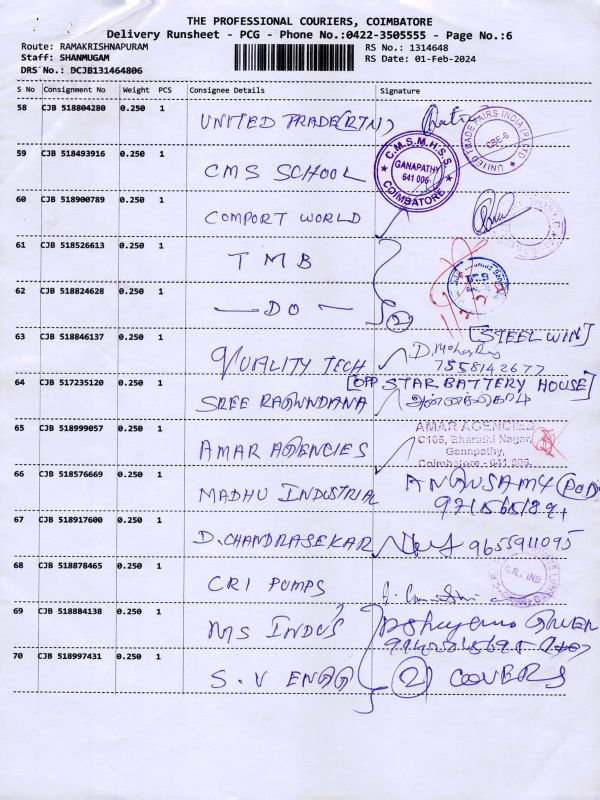 THE PROFESSIONAL COURIERS, COIMBATORE
Delivery Runsheet - PCG - Phone No.:0422-3505555 - Page No.:6
Route: RAMAKRISHNAPURAM
RS No.: 1314648
Staff: SHANMUGAM
RS Date: 01-Feb-2024
DRS No.: DCJB131464806
S No Consignment No Weight PCS Consignee Details Signature
58 CJB 518804280 0.250 1
UNITED TRADE (RTN)
UNITED TRADE FAIRS INDIA (P) LTD
CBE-6
59 CJB 518493916 0.250 1
CMS SCHOOL
C.M.S.M.H.S.S
GANAPATHY
641 006
COIMBATORE
60 CJB 518900789 0.250 1
COMPORT WORLD
61 CJB 518526613 0.250 1
TMB
62 CJB 518824628 0.250 1
DO
2
63 CJB 518846137 0.250 1
QUALITY TECH
[STEEL WIN]
7558142677
64 CJB 517235120 0.250 1
[OPP STAR BATTERY HOUSE]
SREE
65 CJB 518999057 0.250 1
AMAR AGENCIES
AMAR AGENCIES
C165, Bharathi Nagar,
Ganapathy,
Coimbatore - 641 006.
66 CJB 518576669 0.250 1
MADHU INDUSTRIAL
(POD)
67 CJB 518917600 0.250 1
D.CHANDRASEKAR
9655911095
68 CJB 518878465 0.250 1
CRI PUMPS
69 CJB 518884138 0.250 1
MS INDU'S
70 CJB 518997431 0.250 1
S.V ENGG
2 COVERS